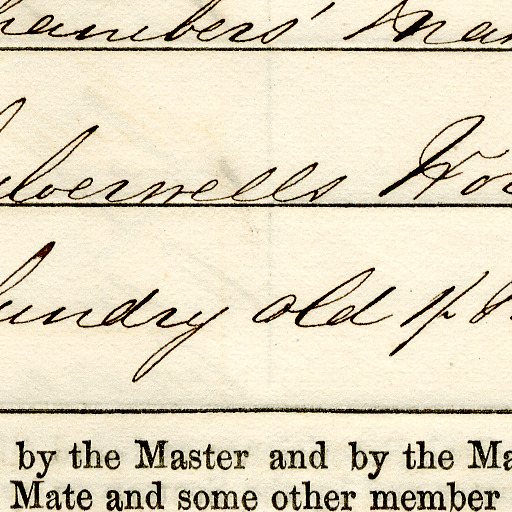 hambers' Man
ilverwells Wor
Sundry old
by the Master and by the Ma
Mate and some other member